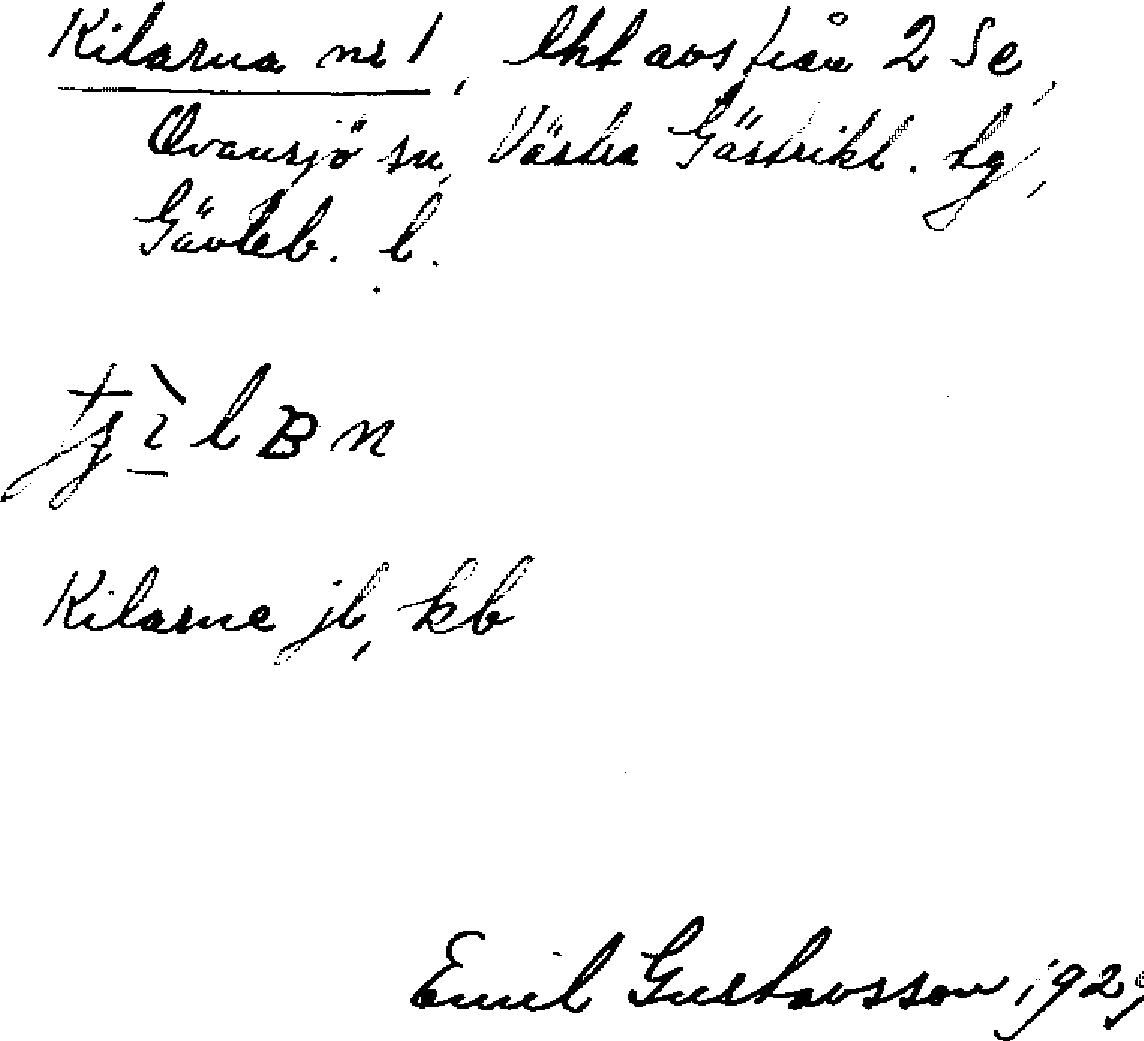 Kilarna nr 1, lht avs från 2 Se,
Ovansjö sn, Västra Gästrikl. tg,
Gävleb. l.
Kilarne jb, kb
Emil Gustavsson, 1929